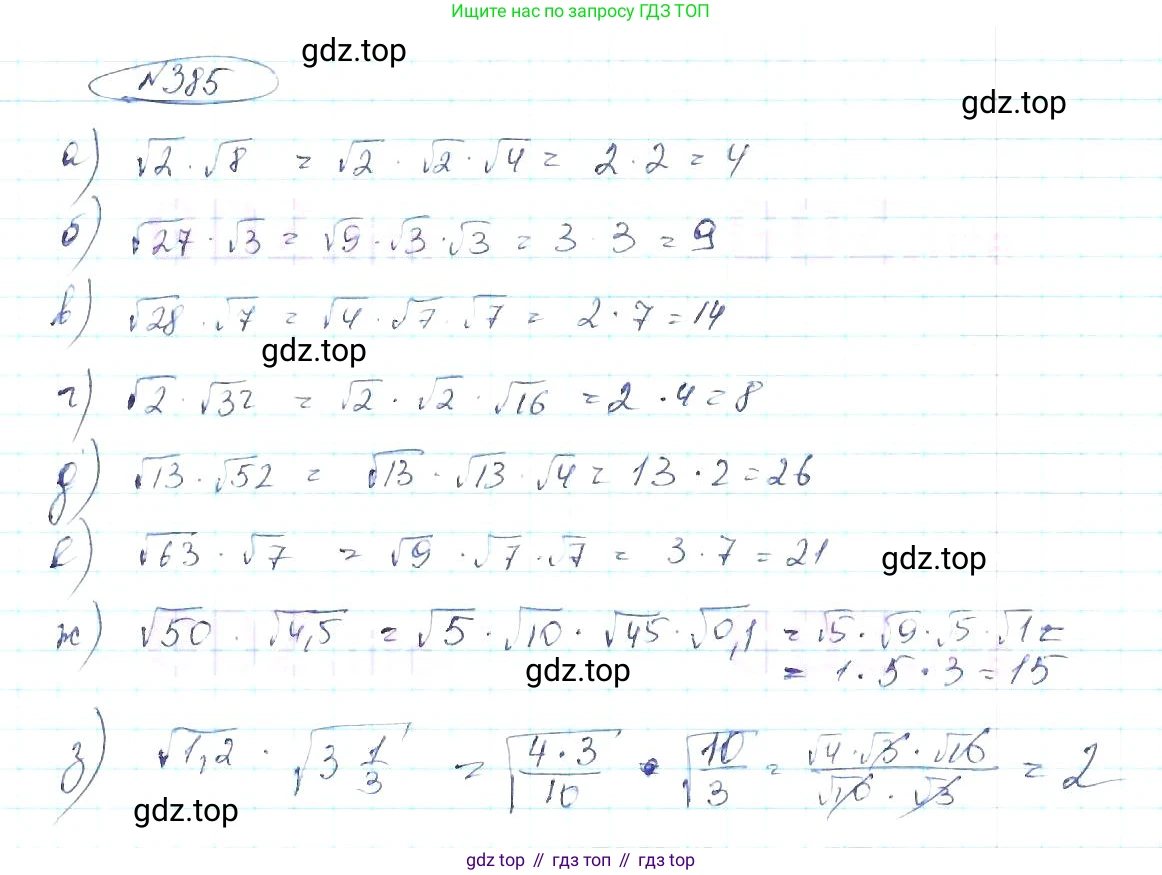 Ищите нас по запросу ГДЗ ТОП
gdz.top
№385
gdz.top
а) √2 · √8 = √2 · √2 · √4 = 2 · 2 = 4
б) √27 · √3 = √9 · √3 · √3 = 3 · 3 = 9
в) √28 · √7 = √4 · √7 · √7 = 2 · 7 = 14
gdz.top
г) √2 · √32 = √2 · √2 · √16 = 2 · 4 = 8
д) √13 · √52 = √13 · √13 · √4 = 13 · 2 = 26
е) √63 · √7 = √9 · √7 · √7 = 3 · 7 = 21
gdz.top
ж) √50 · √4,5 = √5 · √10 · √45 · √0,1 = √5 · √9 · √5 · √1 =
= 1 · 5 · 3 = 15
gdz.top
з) √1,2 · √(3 1/3) = √(4 · 3/10) · √(10/3) = (√4 · √3 · √10)/(√10 · √3) = 2
gdz.top
gdz top // гдз топ // gdz top